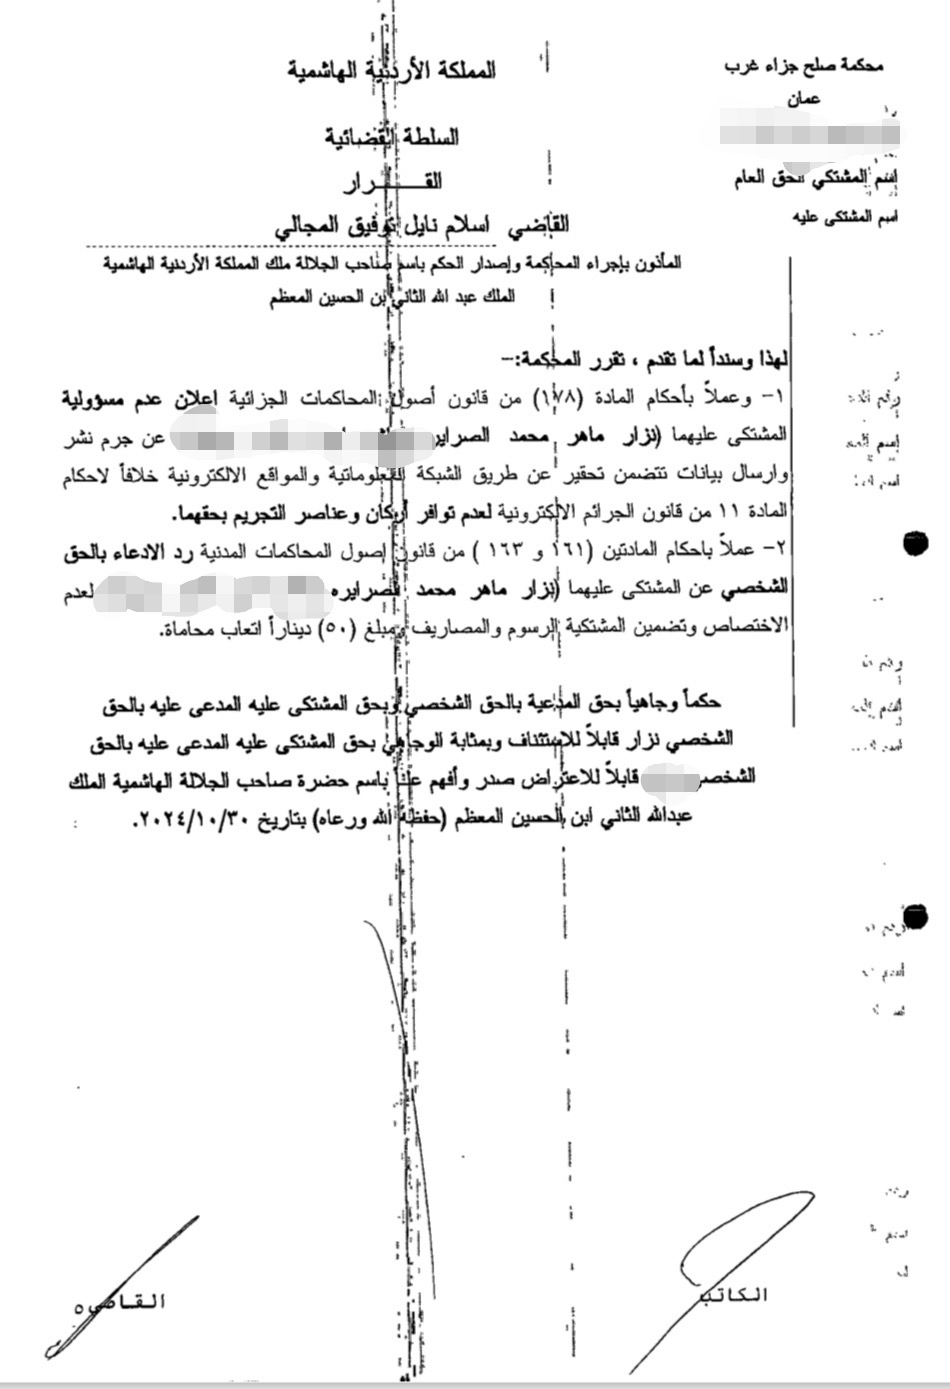 محكمة صلح جزاء غرب
عمان
المملكة الأردنية الهاشمية
السلطة القضائية
القـــــرار
اسم المشتكي الحق العام
اسم المشتكى عليه
القاضي اسلام نايل توفيق المجالي
المأذون بإجراء المحاكمة وإصدار الحكم باسم صاحب الجلالة ملك المملكة الأردنية الهاشمية
الملك عبد الله الثاني بن الحسين المعظم
لهذا وسنداً لما تقدم ، تقرر المحكمة:-
١- وعملاً بأحكام المادة (١٧٨) من قانون أصول المحاكمات الجزائية اعلان عدم مسؤولية
المشتكى عليهما (نزار ماهر محمد الصرايره عن جرم نشر
وارسال بيانات تتضمن تحقير عن طريق الشبكة المعلوماتية والمواقع الالكترونية خلافاً لاحكام
المادة ١١ من قانون الجرائم الالكترونية لعدم توافر أركان وعناصر التجريم بحقهما.
٢- عملاً باحكام المادتين (١٦١ و ١٦٣ ) من قانون اصول المحاكمات المدنية رد الادعاء بالحق
الشخصي عن المشتكى عليهما (نزار ماهر محمد الصرايره لعدم
الاختصاص وتضمين المشتكية الرسوم والمصاريف ومبلغ (٥٠) ديناراً اتعاب محاماة.
حكماً وجاهياً بحق المدعية بالحق الشخصي وبحق المشتكى عليه المدعى عليه بالحق
الشخصي نزار قابلاً للاستئناف وبمثابة الوجاهي بحق المشتكى عليه المدعى عليه بالحق
الشخصي قابلاً للاعتراض صدر وأفهم علناً باسم حضرة صاحب الجلالة الهاشمية الملك
عبدالله الثاني ابن الحسين المعظم (حفظه الله ورعاه) بتاريخ ٢٠٢٤/١٠/٣٠.
الكاتب
القاضي